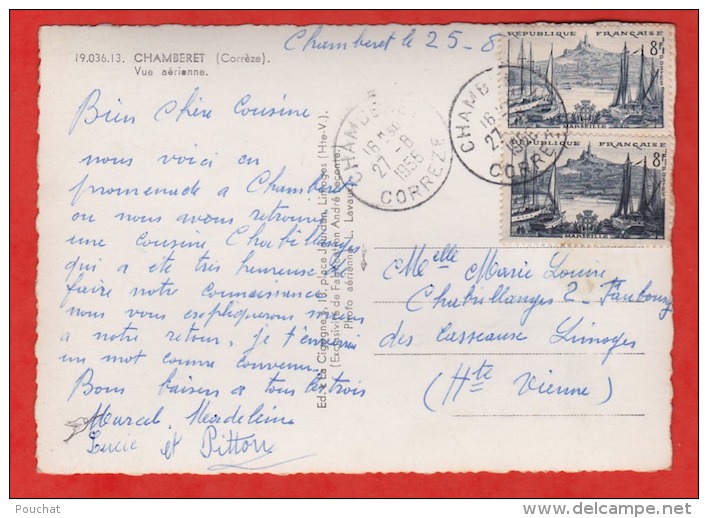 19.036.13. CHAMBERET (Corrèze).
Vue aérienne.
Chamberet le 25-8
Bien Chère Cousine
nous voici en
promenade a Chamberet
ou nous avons retrouvé
une cousine Chabrillanges
qui a ete très heureuse de
faire notre connaissance
nous vous expliquerons mieux
a notre retour, je t'envoie
un mot comme convenu.
Bons baisers a tous les trois
Marcel Madeleine
Lucie et Pitton
Ed. « La Cigogne », 10, place Jourdan, Limoges (Hte-V.)
Exclusivité de Fabrication André Leconte
Photo aérienne L. Lavaud
CHAMBERET
16 H
27-8
1956
CORREZE
CHAMBERET
16 H
27-8
1956
CORREZE
RÉPUBLIQUE FRANÇAISE
8F
POSTES
MARSEILLE
RÉPUBLIQUE FRANÇAISE
8F
POSTES
MARSEILLE
Melle Marie Louise
Chabrillanges 2 Faubourg
des Casseaux Limoges
(Hte Vienne)
Pouchat
delcampe.net